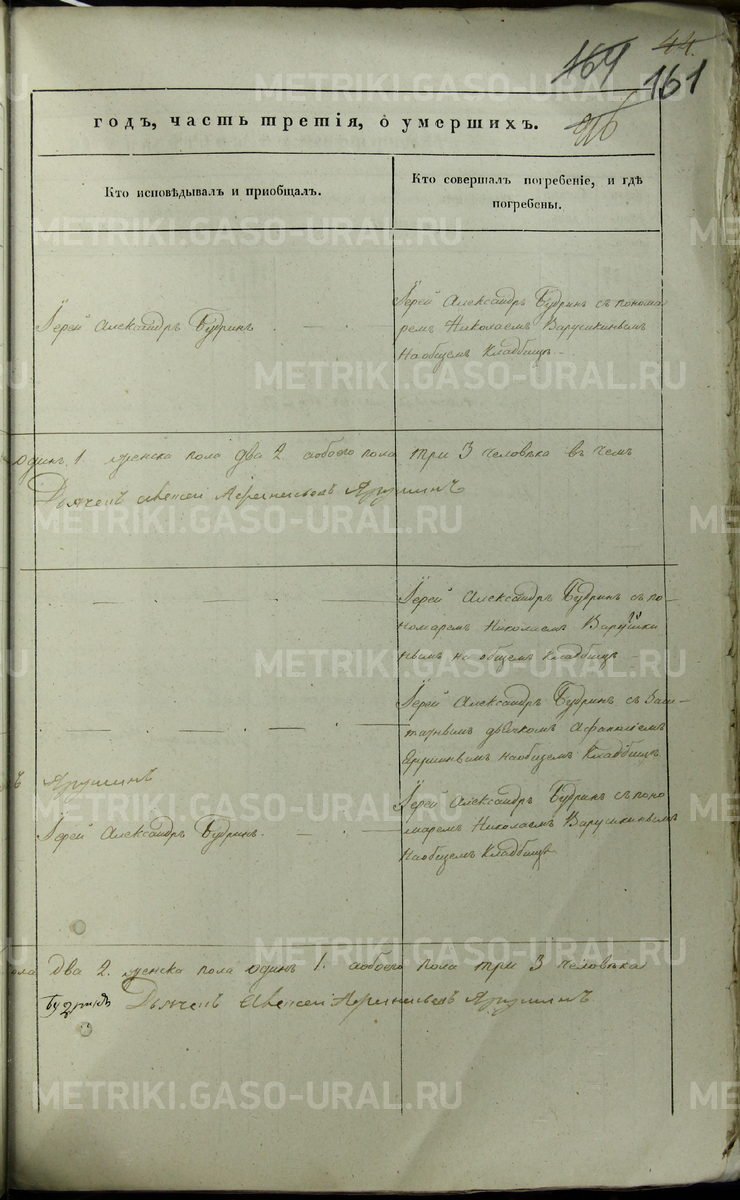 44.
164
161
годъ, часть третія, о умершихъ.
Кто исповѣдывалъ и пріобщалъ.
Кто совершалъ погребеніе, и гдѣ
погребены.
Іерей Александръ Будринъ
Іерей Александръ Будринъ съ понома
ремъ Николаемъ Варушкинымъ
на общемъ кладбищѣ
одинъ 1 женска пола два 2 обоего пола три 3 человѣка въ чемъ
Дьячекъ
Іерей Александръ Будринъ съ по-
номаремъ Николаемъ Варушки
нымъ на общемъ кладбищѣ
Іерей Александръ Будринъ съ Заш-
татнымъ дьячкомъ
на общемъ кладбищѣ
Іерей Александръ Будринъ
Іерей Александръ Будринъ съ поно
маремъ Николаемъ Варушкинымъ
на общемъ кладбищѣ
пола два 2. женска пола одинъ 1. обоего пола три 3 человѣка
Дьячекъ
METRIKI.GASO-URAL.RU